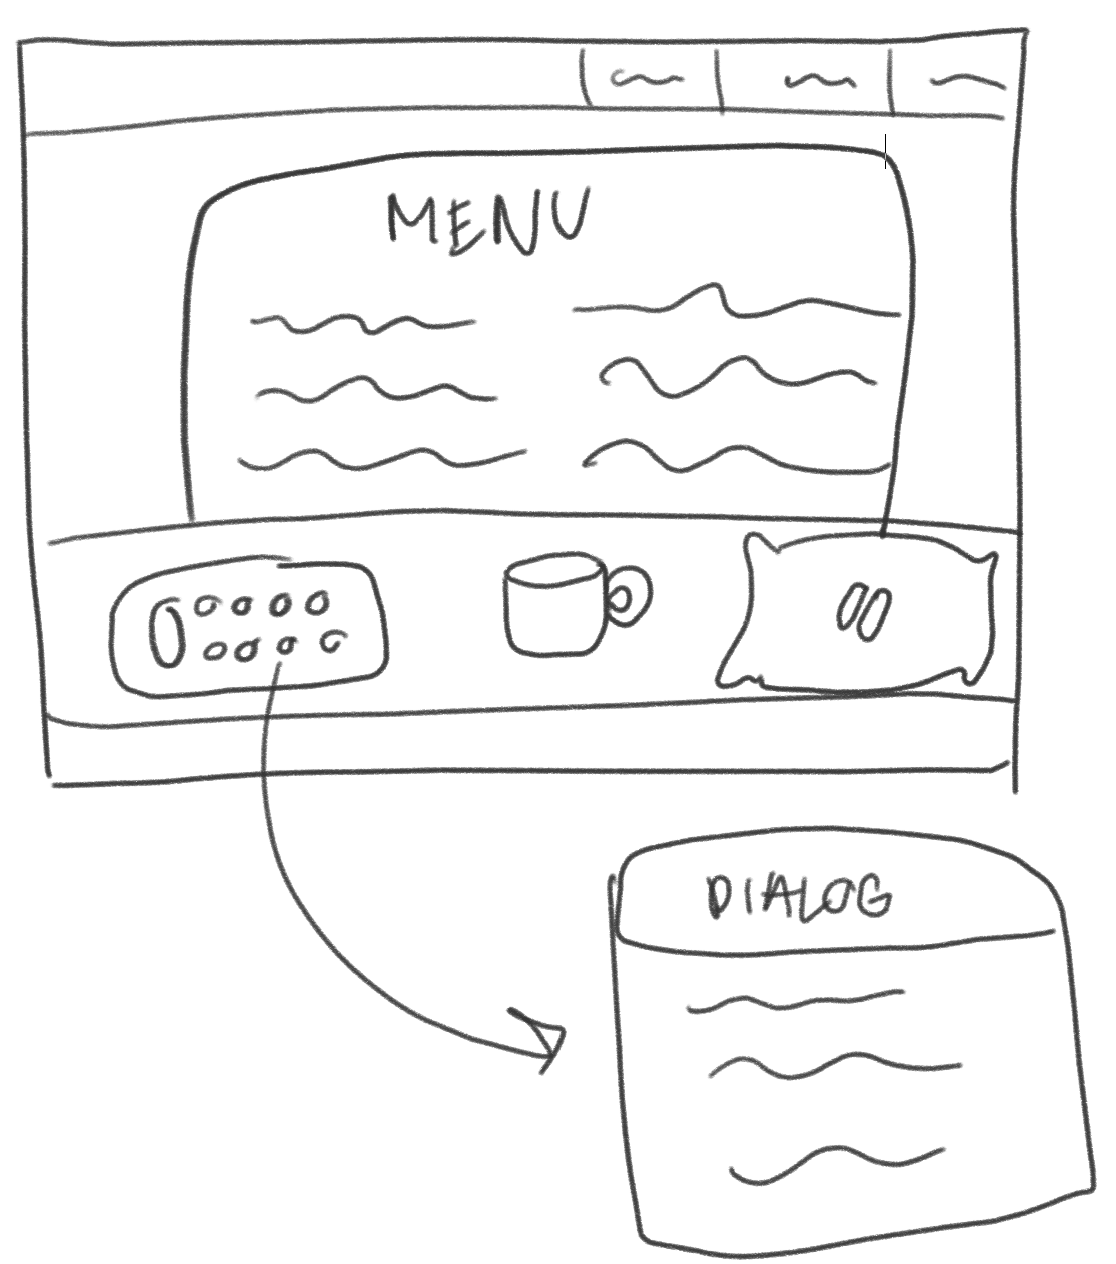 MENU
DIALOG